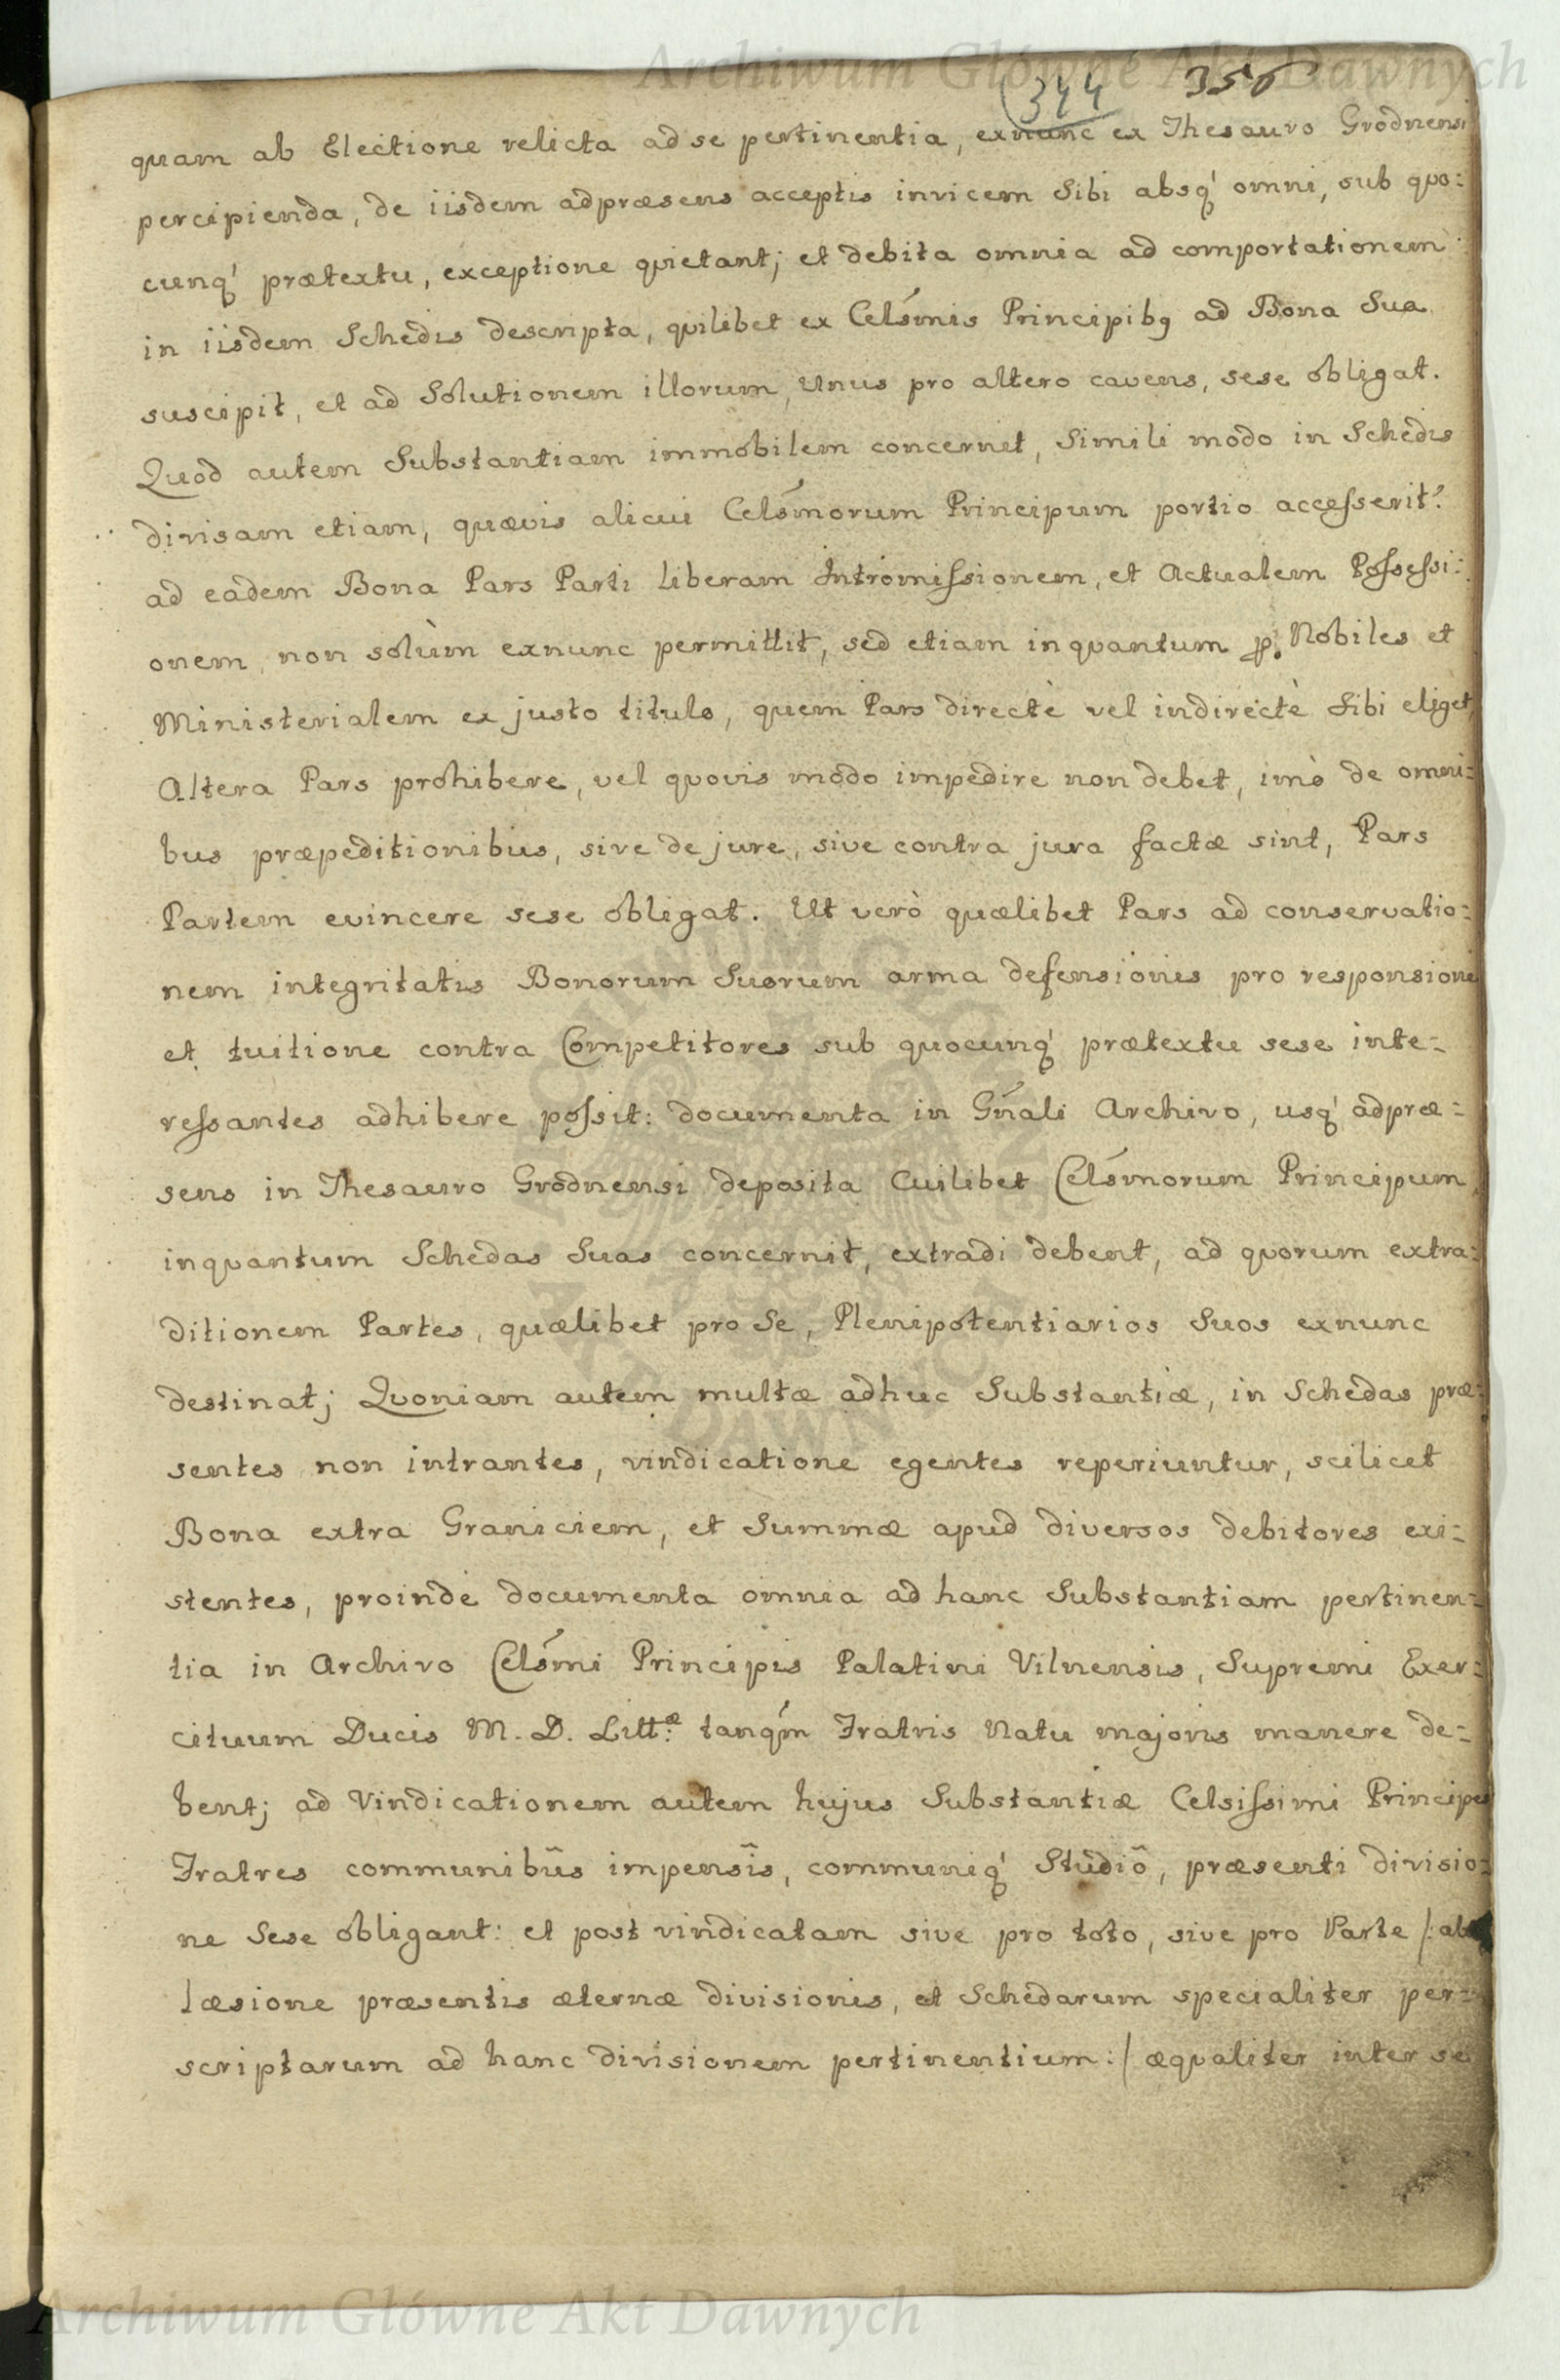 Archiwum Główne Akt Dawnych
344 350
quam ab Electione relicta ad se pertinentia, exnunc ex Thesauro Grodnensi
percipienda, de iisdem adpræsens acceptis invicem Sibi absq́ omni, sub quo:
cunq́ prætextu, exceptione quietant; et debita omnia ad comportationem
in iisdem Schedis descripta, quilibet ex Celśmis Principibꝯ ad Bona Sua
suscipit, et ad Solutionem illorum, Unus pro altero cavens, sese obligat.
Quod autem Substantiam immobilem concernit, Simili modo in Schedis
divisam etiam, quævis alicui Celśmorum Principum portio accesserit:
ad eadem Bona Pars Parti liberam Intromissionem, et Actualem Possessi:
onem, non solùm exnunc permittit, sed etiam inquantum p. Nobiles et
Ministerialem ex justo titulo, quem Pars directè vel indirectè Sibi eliget,
Altera Pars prohibere, vel quovis modo impedire non debet, imò de omni:
bus præpeditionibus, sive de jure, sive contra jura factæ sint, Pars
Partem evincere sese obligat. Ut verò quælibet Pars ad conservatio:
nem integritatis Bonorum Suorum arma defensionis pro responsione
et tuitione contra Competitores sub quocunq́ prætextu sese inte:
ressantes adhibere possit: documenta in Gńali Archivo, usq́ adpræ:
sens in Thesauro Grodnensi deposita Cuilibet Celśmorum Principum,
inquantum Schedas Suas concernit, extradi debent, ad quorum extra:
ditionem Partes, quælibet pro Se, Plenipotentiarios Suos exnunc
destinat; Quoniam autem multæ adhuc Substantiæ, in Schedas præ:
sentes non intrantes, vindicatione egentes reperiuntur, scilicet
Bona extra Graniciem, et Summæ apud diversos debitores exi:
stentes, proindè documenta omnia ad hanc Substantiam pertinen:
tia in Archivo Celśmi Principis Palatini Vilnensis, Supremi Exer:
cituum Ducis M. D. Litt:æ tanqḿ Fratris Natu majoris manere de:
bent; ad Vindicationem autem hujus Substantiæ Celsissimi Principes
Fratres communibũs impensĩs, communiq́ Studiõ, præsenti divisio:
ne Sese obligant: et post vindicatam sive pro toto, sive pro Parte /: abs
læsione præsentis æternæ divisionis, et Schedarum specialiter per:
scriptarum ad hanc divisionem pertinentium :/ æqualiter inter se
ARCHIWUM GŁÓWNE AKT DAWNYCH
Archiwum Główne Akt Dawnych